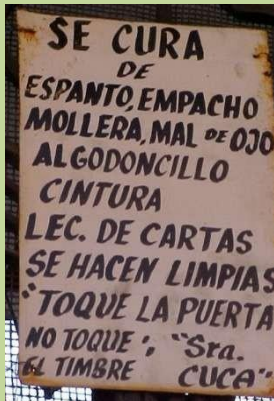 SE CURA
DE
ESPANTO, EMPACHO
MOLLERA, MAL DE OJO
ALGODONCILLO
CINTURA
LEC. DE CARTAS
SE HACEN LIMPIAS
"TOQUE LA PUERTA
NO TOQUE ", "Sra.
EL TIMBRE CUCA"